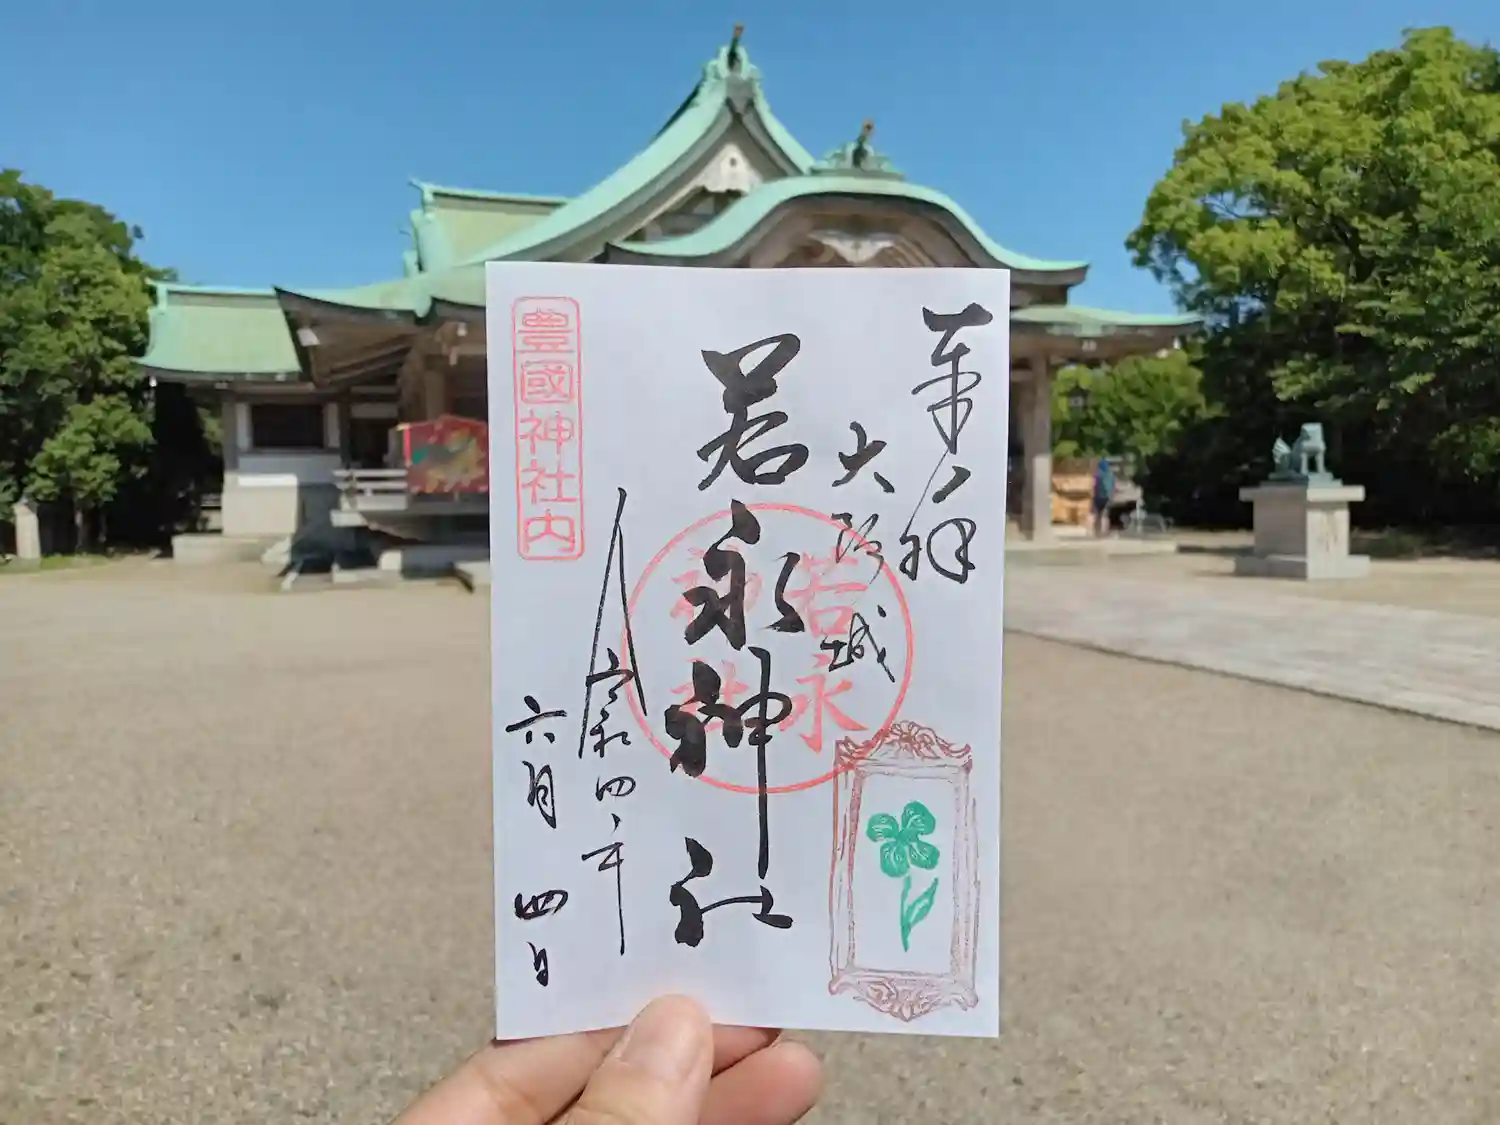 奉拝
大阪城
若永神社
若永神社
令和四年
六月四日
豊國神社内